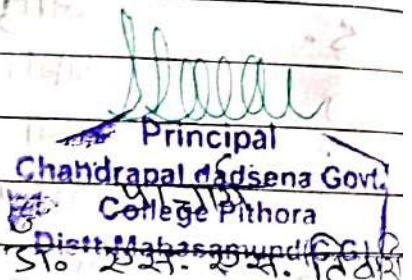 Principal
Chandrapal dadsena Govt.
प्राचार्य
College Pithora
Distt. Mahasamund (C.G.)
डॉ० एस. एस. तिवारी